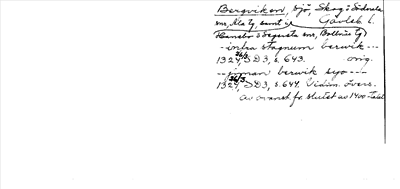 Bergviken, sjö, Skog o Söderala
snr, Ala tg, samt i Gävleb l.
Hanebo o Segersta snr, Bollnäs tg
--infra stagnum berwik---
1324 26/3, SD3, s. 643. orig.
--innan berwik syo---
1324 26/3, SD3, s. 644. Vidim. övers.
av oranst. fr. slutet av 1400-talet